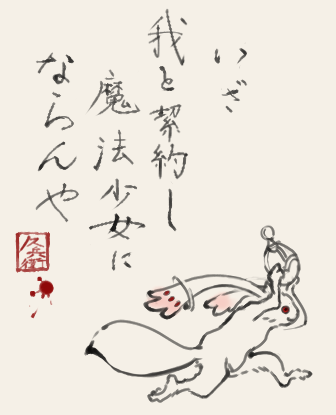 いざ
我と契約し
魔法少女に
ならんや
久兵衛